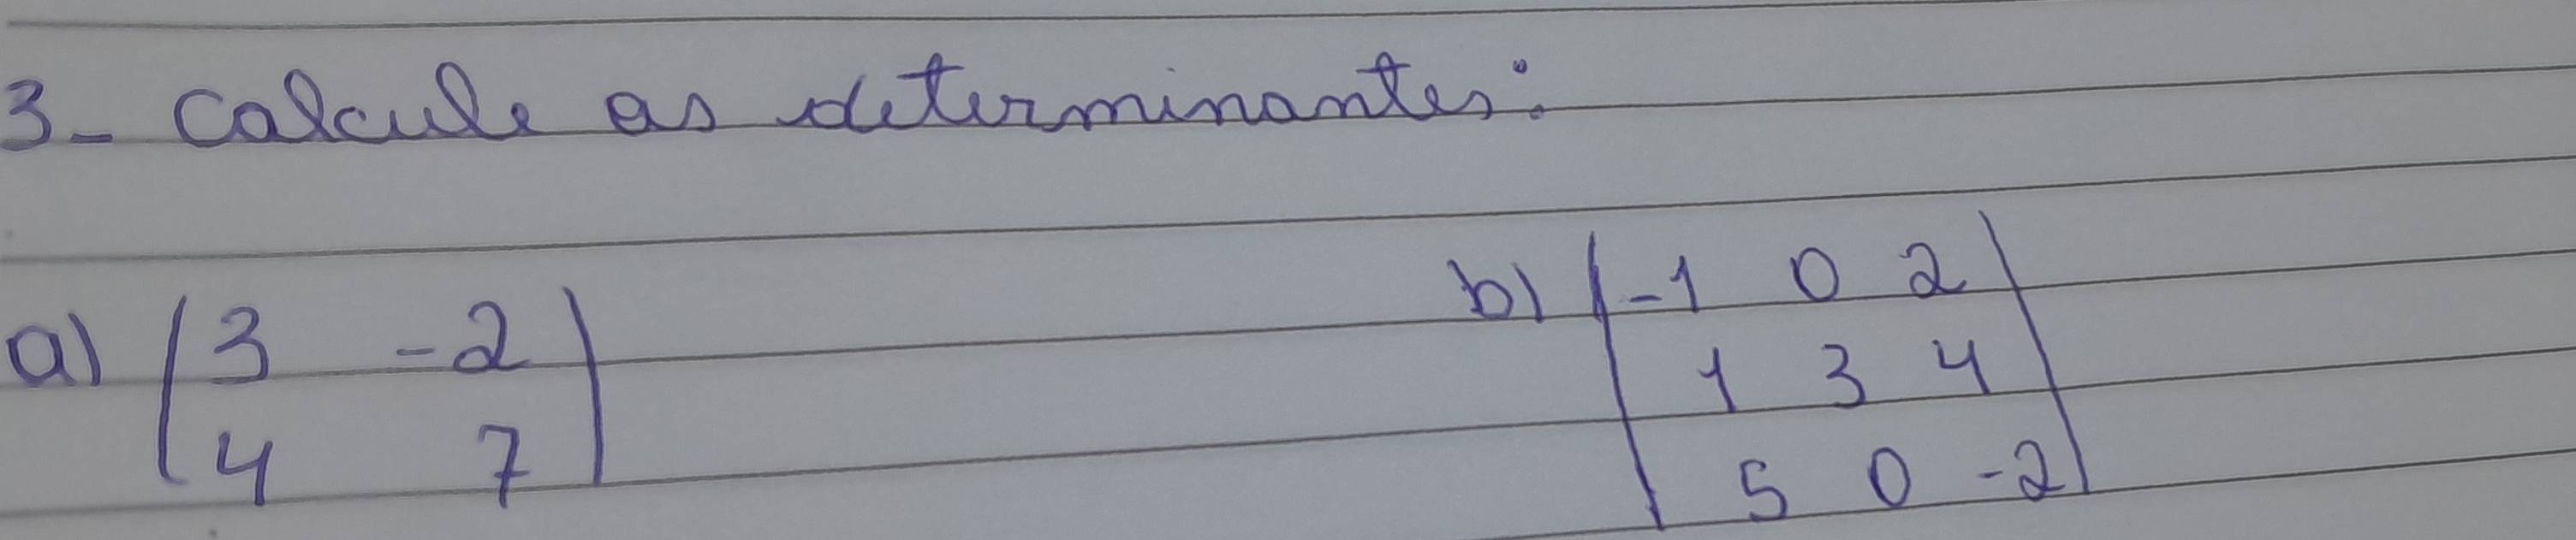 3- Calcule as determinantes:
a) | 3 -2 |
| 4 7 |
b) | -1 0 2 |
| 1 3 4 |
| 5 0 -2 |